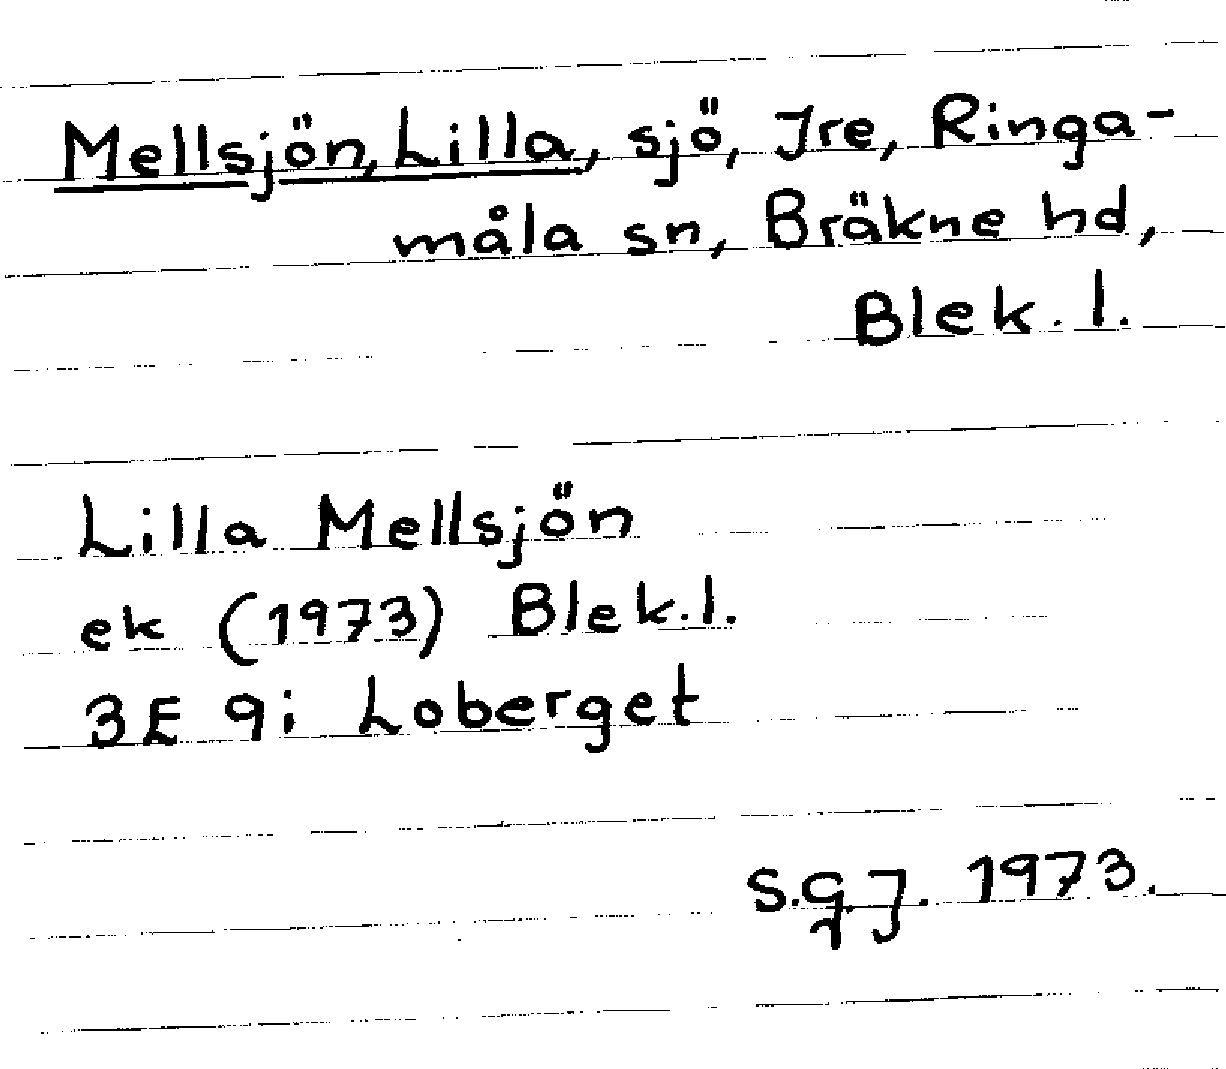 Mellsjön, Lilla, sjö, Ire, Ringa-
måla sn, Bräkne hd,
Blek. l.
Lilla Mellsjön
ek (1973) Blek. l.
3E 9i Loberget
S.G.J. 1973.